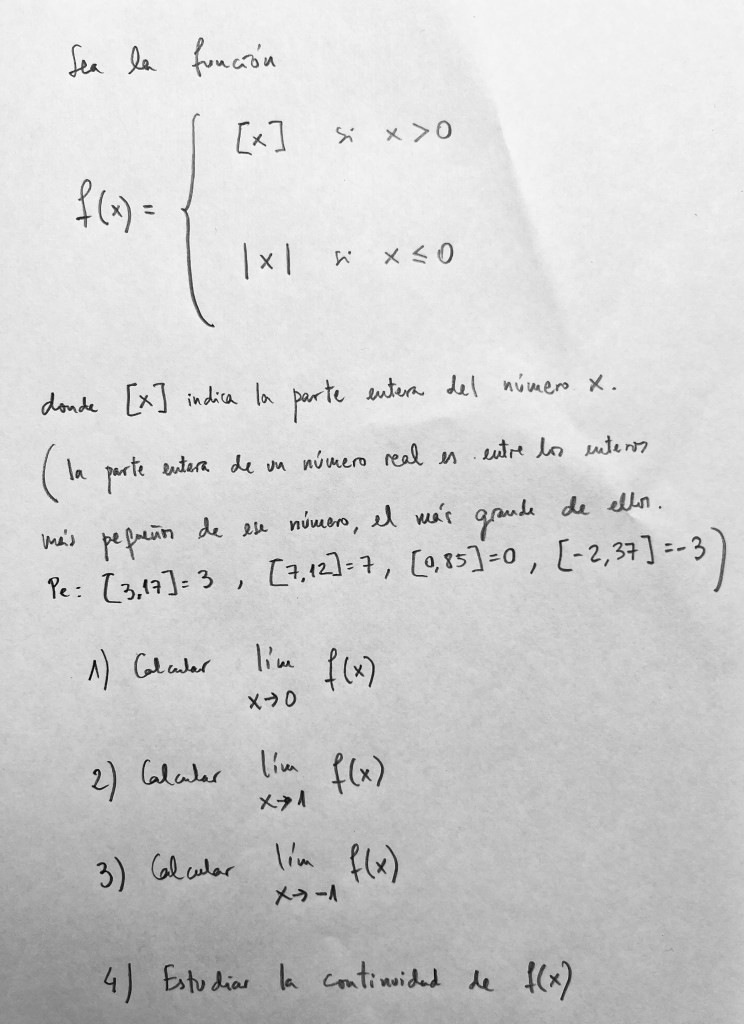 Sea la función
f(x) = { [x] si x > 0
|x| si x ≤ 0
donde [x] indica la parte entera del número x.
(la parte entera de un número real es entre los enteros
más pequeños de ese número, el más grande de ellos.
Pe: [3,17]=3 , [7,12]=7, [0,85]=0 , [-2,37]=-3)
1) Calcular lím f(x)
x→0
2) Calcular lím f(x)
x→1
3) Calcular lím f(x)
x→-1
4) Estudiar la continuidad de f(x)